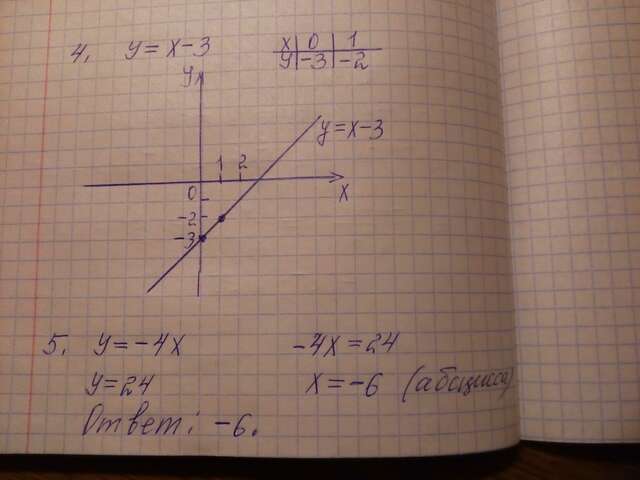 4. y = x-3
x 0 1
y -3 -2
y
y=x-3
1 2
0
x
-2
-3
5. y=-4x -4x=24
y=24 x=-6 (абсцисса)
Ответ: -6.